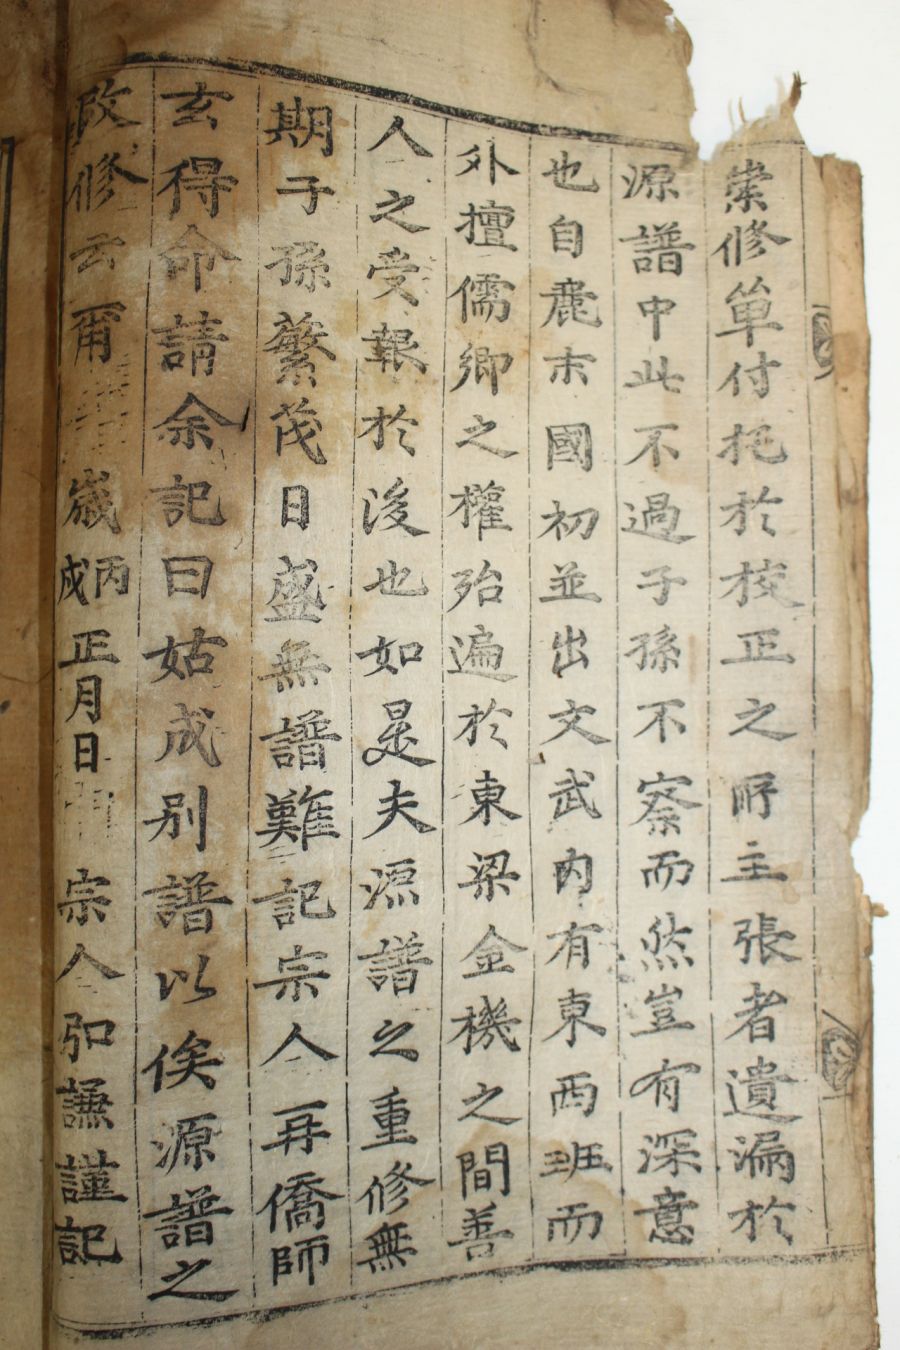 修單付托於校正之所主張者遺漏於
源譜中此不過子孫不察而然豈有深意
也自麗末國初並出文武內有東西班而
外擅儒鄉之權殆遍於東梁金機之間善
人之受報於後也如是夫源譜之重修無
期子孫繁茂日盛無譜難記宗人再僑師
玄得命請余記曰姑成別譜以俟源譜之
改修云爾 歲丙戌正月日 宗人弘謙謹記